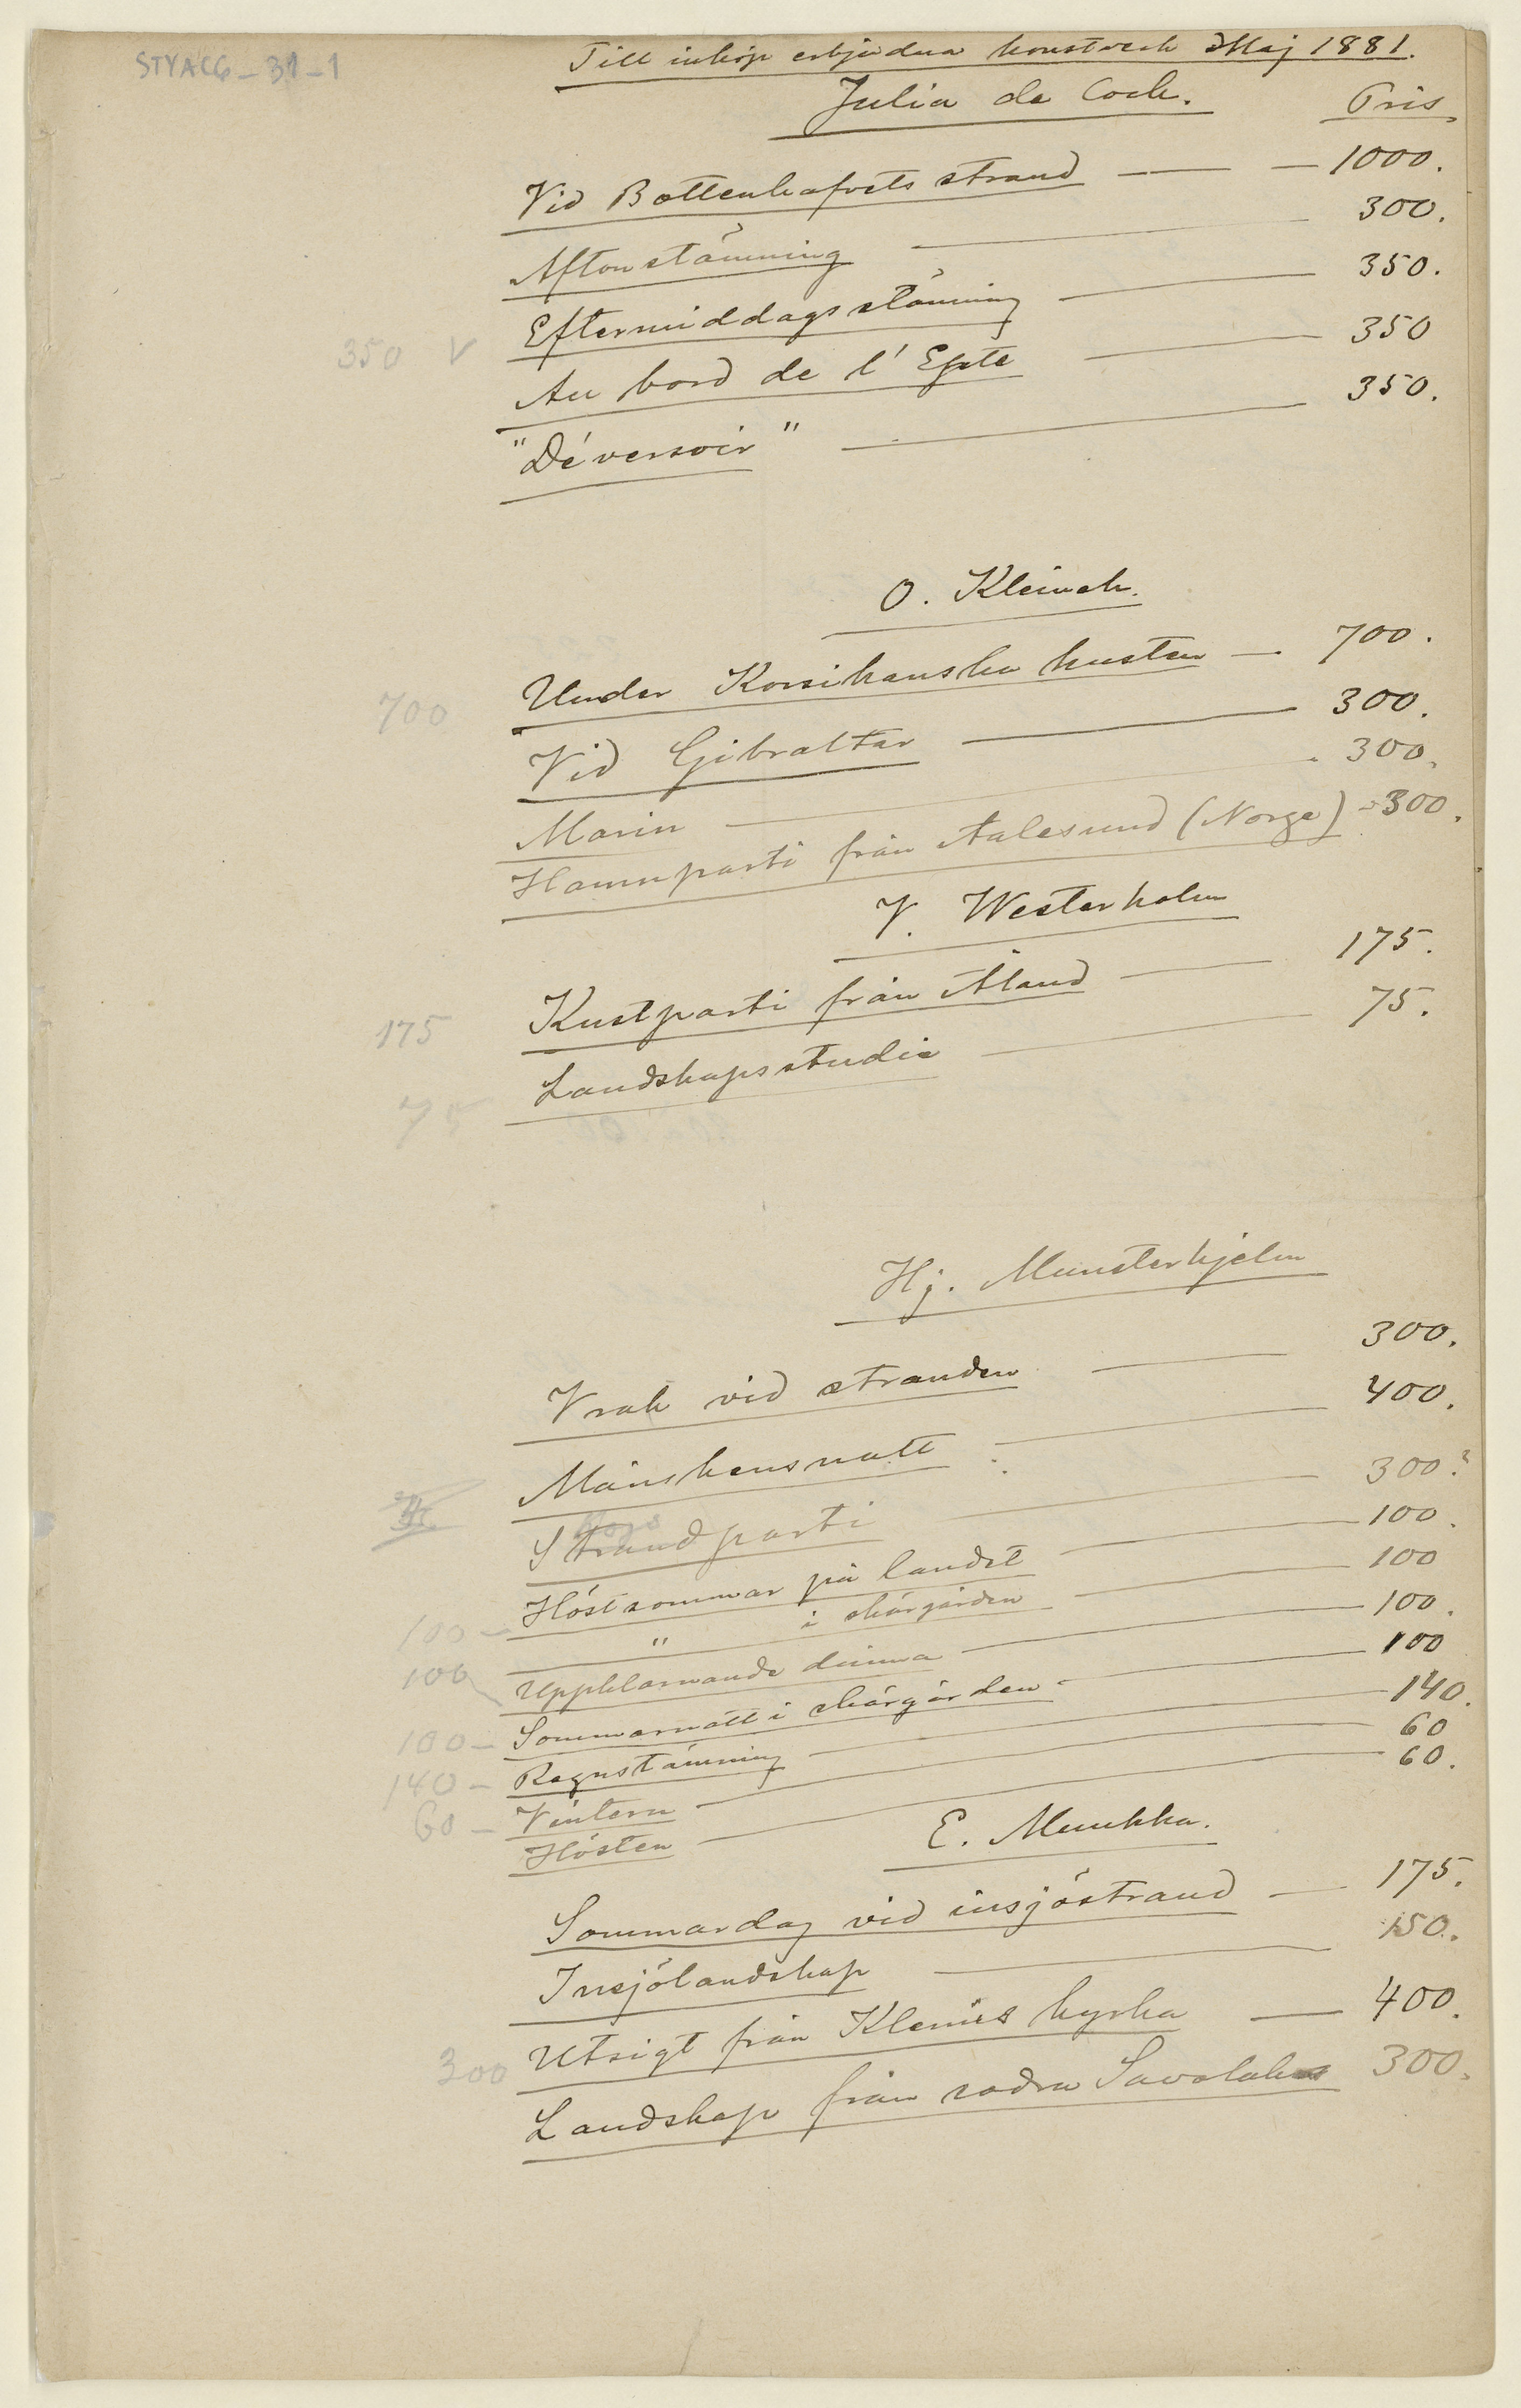 STYACG_31_1
Till inköp erbjudna konstverk Maj 1881.
Julia de Cock. Pris.
Vid Bottenhafvets strand — — 1000.
Aftonstämning — 300.
Eftermiddagsstämning — 350.
350 V Au bord de l'Epte — 350
"Déversoir" — 350.
O. Kleineh.
700 Under Korsikanska kusten — 700.
Vid Gibraltar — 300.
Marin — 300.
Hamnparti från Aalesund (Norge) - 300.
V. Westerholm
175 Kustparti från Åland — 175.
75 Landskapsstudie — 75.
Hj. Munsterhjelm
Vrak vid stranden — 300.
Månskensnatt — 400.
Strandparti — 300?
100 — Höstsommar på landet — 100.
100 " i skärgården — 100
Uppklarnande dimma — 100.
100 — Sommarnatt i skärgården — 100
140 — Regnstämning — 140.
60 — Vintern — 60
Hösten — 60.
E. Muukka.
Sommardag vid insjöstrand — 175.
Insjölandskap — 150.
Utsigt från Klemis kyrka — 400.
300 Landskap från södra Savolaks 300.